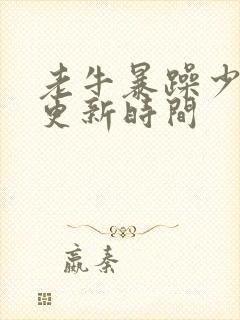 老牛暴躁少
更新時間
嬴秦